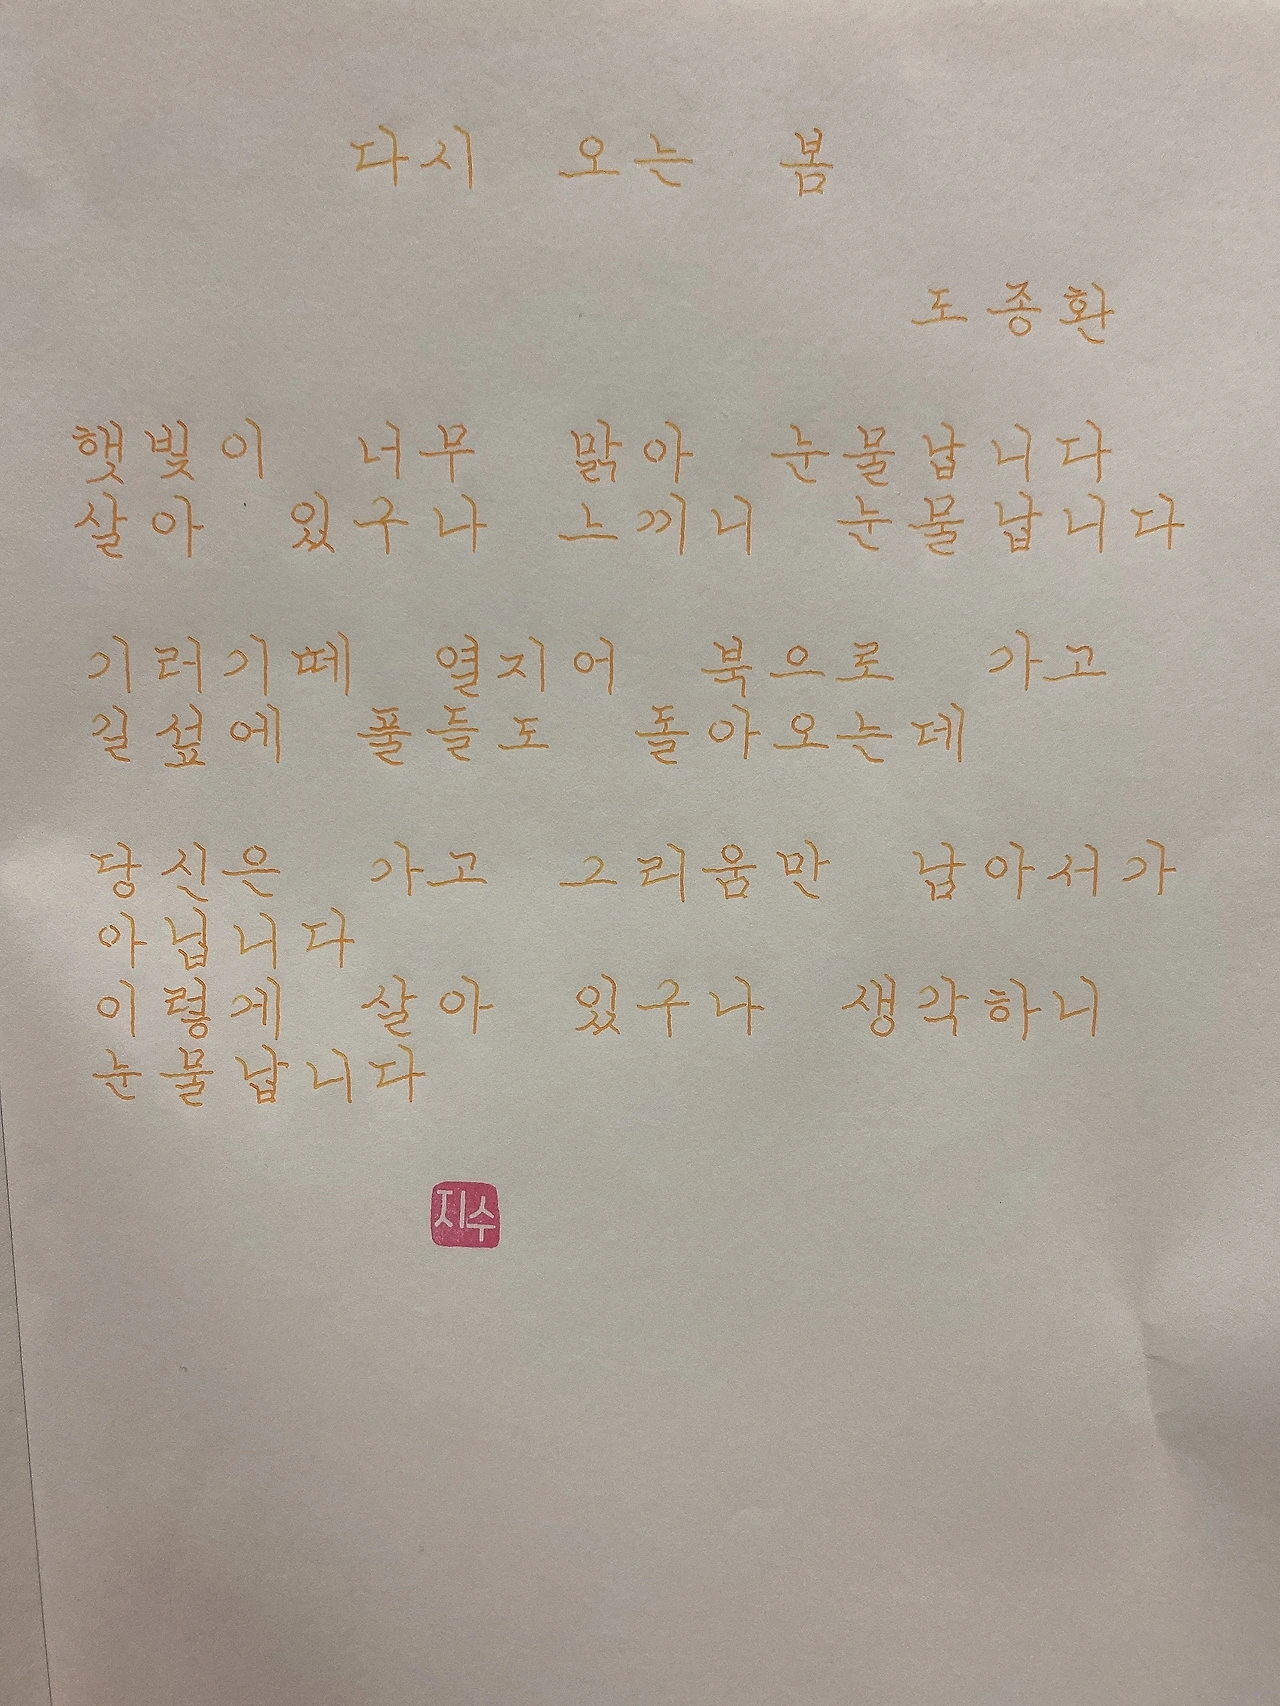 다시 오는 봄
도종환
햇빛이 너무 맑아 눈물납니다
살아 있구나 느끼니 눈물납니다
기러기떼 열지어 북으로 가고
길섶에 풀들도 돌아오는데
당신은 가고 그리움만 남아서가
아닙니다
이렇게 살아 있구나 생각하니
눈물납니다
지수